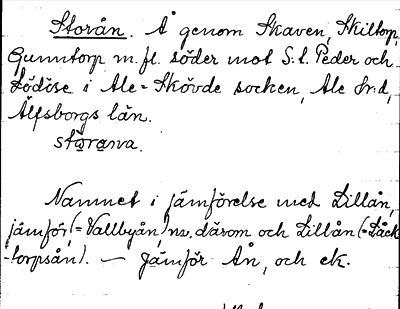 Storån. Å genom Skaven, Skiltorp,
Gunntorp m. fl. söder mot S:t Peder och
Lödöse i Ale-Skövde socken, Ale hrd,
Älfsborgs län.
stǫrana.
Namnet i jämförelse med Lillån,
jämför (=Vallbyån) nv. därom och Lillån (=Bäck-
-torpsån). — Jämför Ån, och ek.